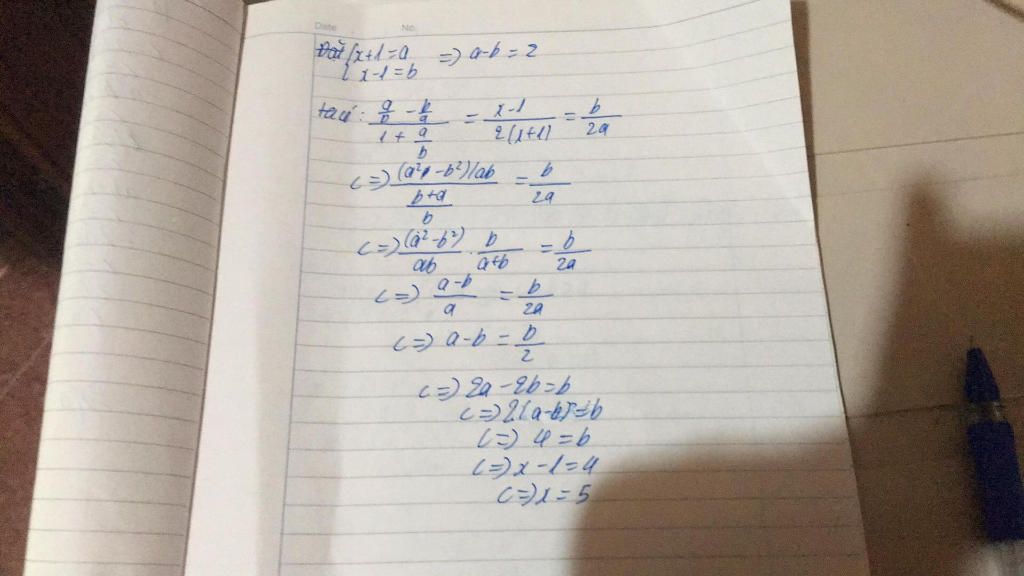 Date No.
Đặt { x+1=a => a-b=2
{ x-1=b
ta có: (a/b - b/a)/(1 + a/b) = (x-1)/(2(x+1)) = b/2a
<=> ((a²-b²)/ab)/((b+a)/b) = b/2a
<=> (a²-b²)/ab . b/(a+b) = b/2a
<=> (a-b)/a = b/2a
<=> a-b = b/2
<=> 2a-2b=b
<=> 2(a-b)=b
<=> 4=b
<=> x-1=4
<=> x=5